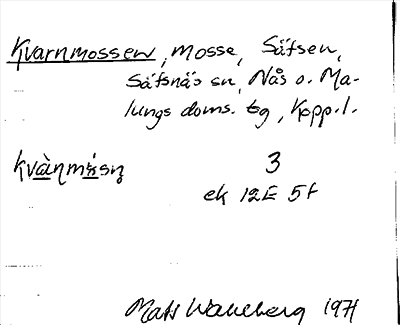 Kvarnmossen, mosse, Säfsen,
Säfsnäs sn, Nås o. Ma-
lungs doms. tg, Kopp. l.
kvὰn̥mɨ̀sn̥ 3
ek 12E 5f
Mats Wahlberg 1971